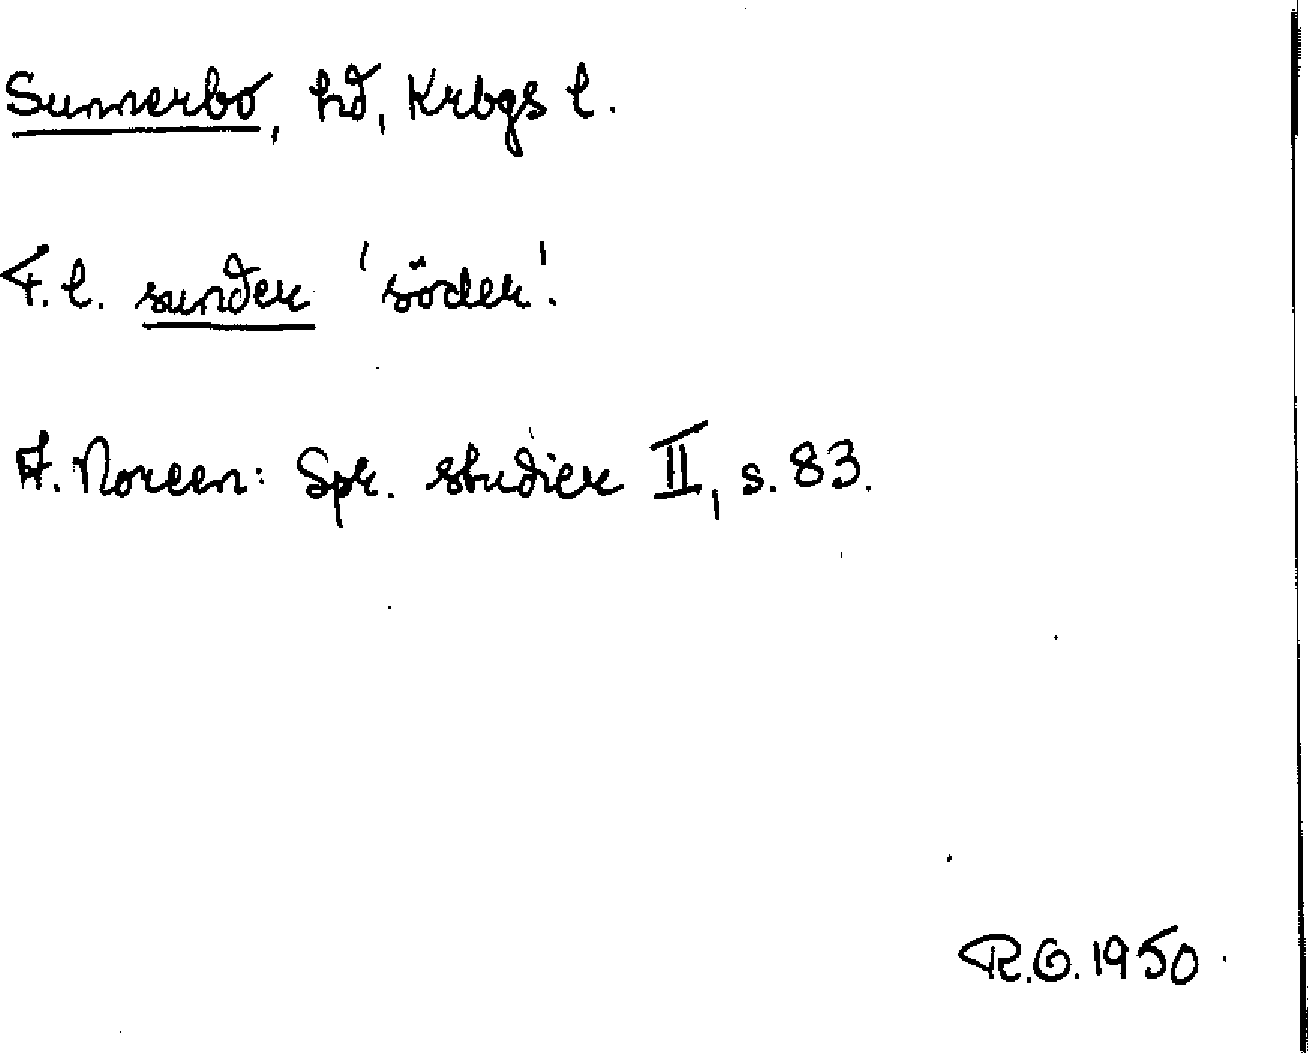 Sunnerbo, hd, Krbgs l.
F. l. sunder 'söder'.
A. Noreen: Spr. studier II, s. 83.
R.O. 1950.